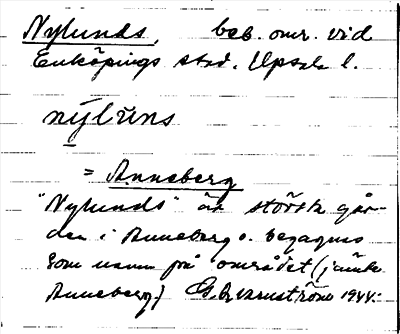 Nylunds, beb. omr. vid
Enköpings stad. Upsala l.
nýlùns
= Anneberg
"Nylunds" är största går-
den i Anneberg o. begagnas
som namn på området (jämte
Anneberg.) 1944.